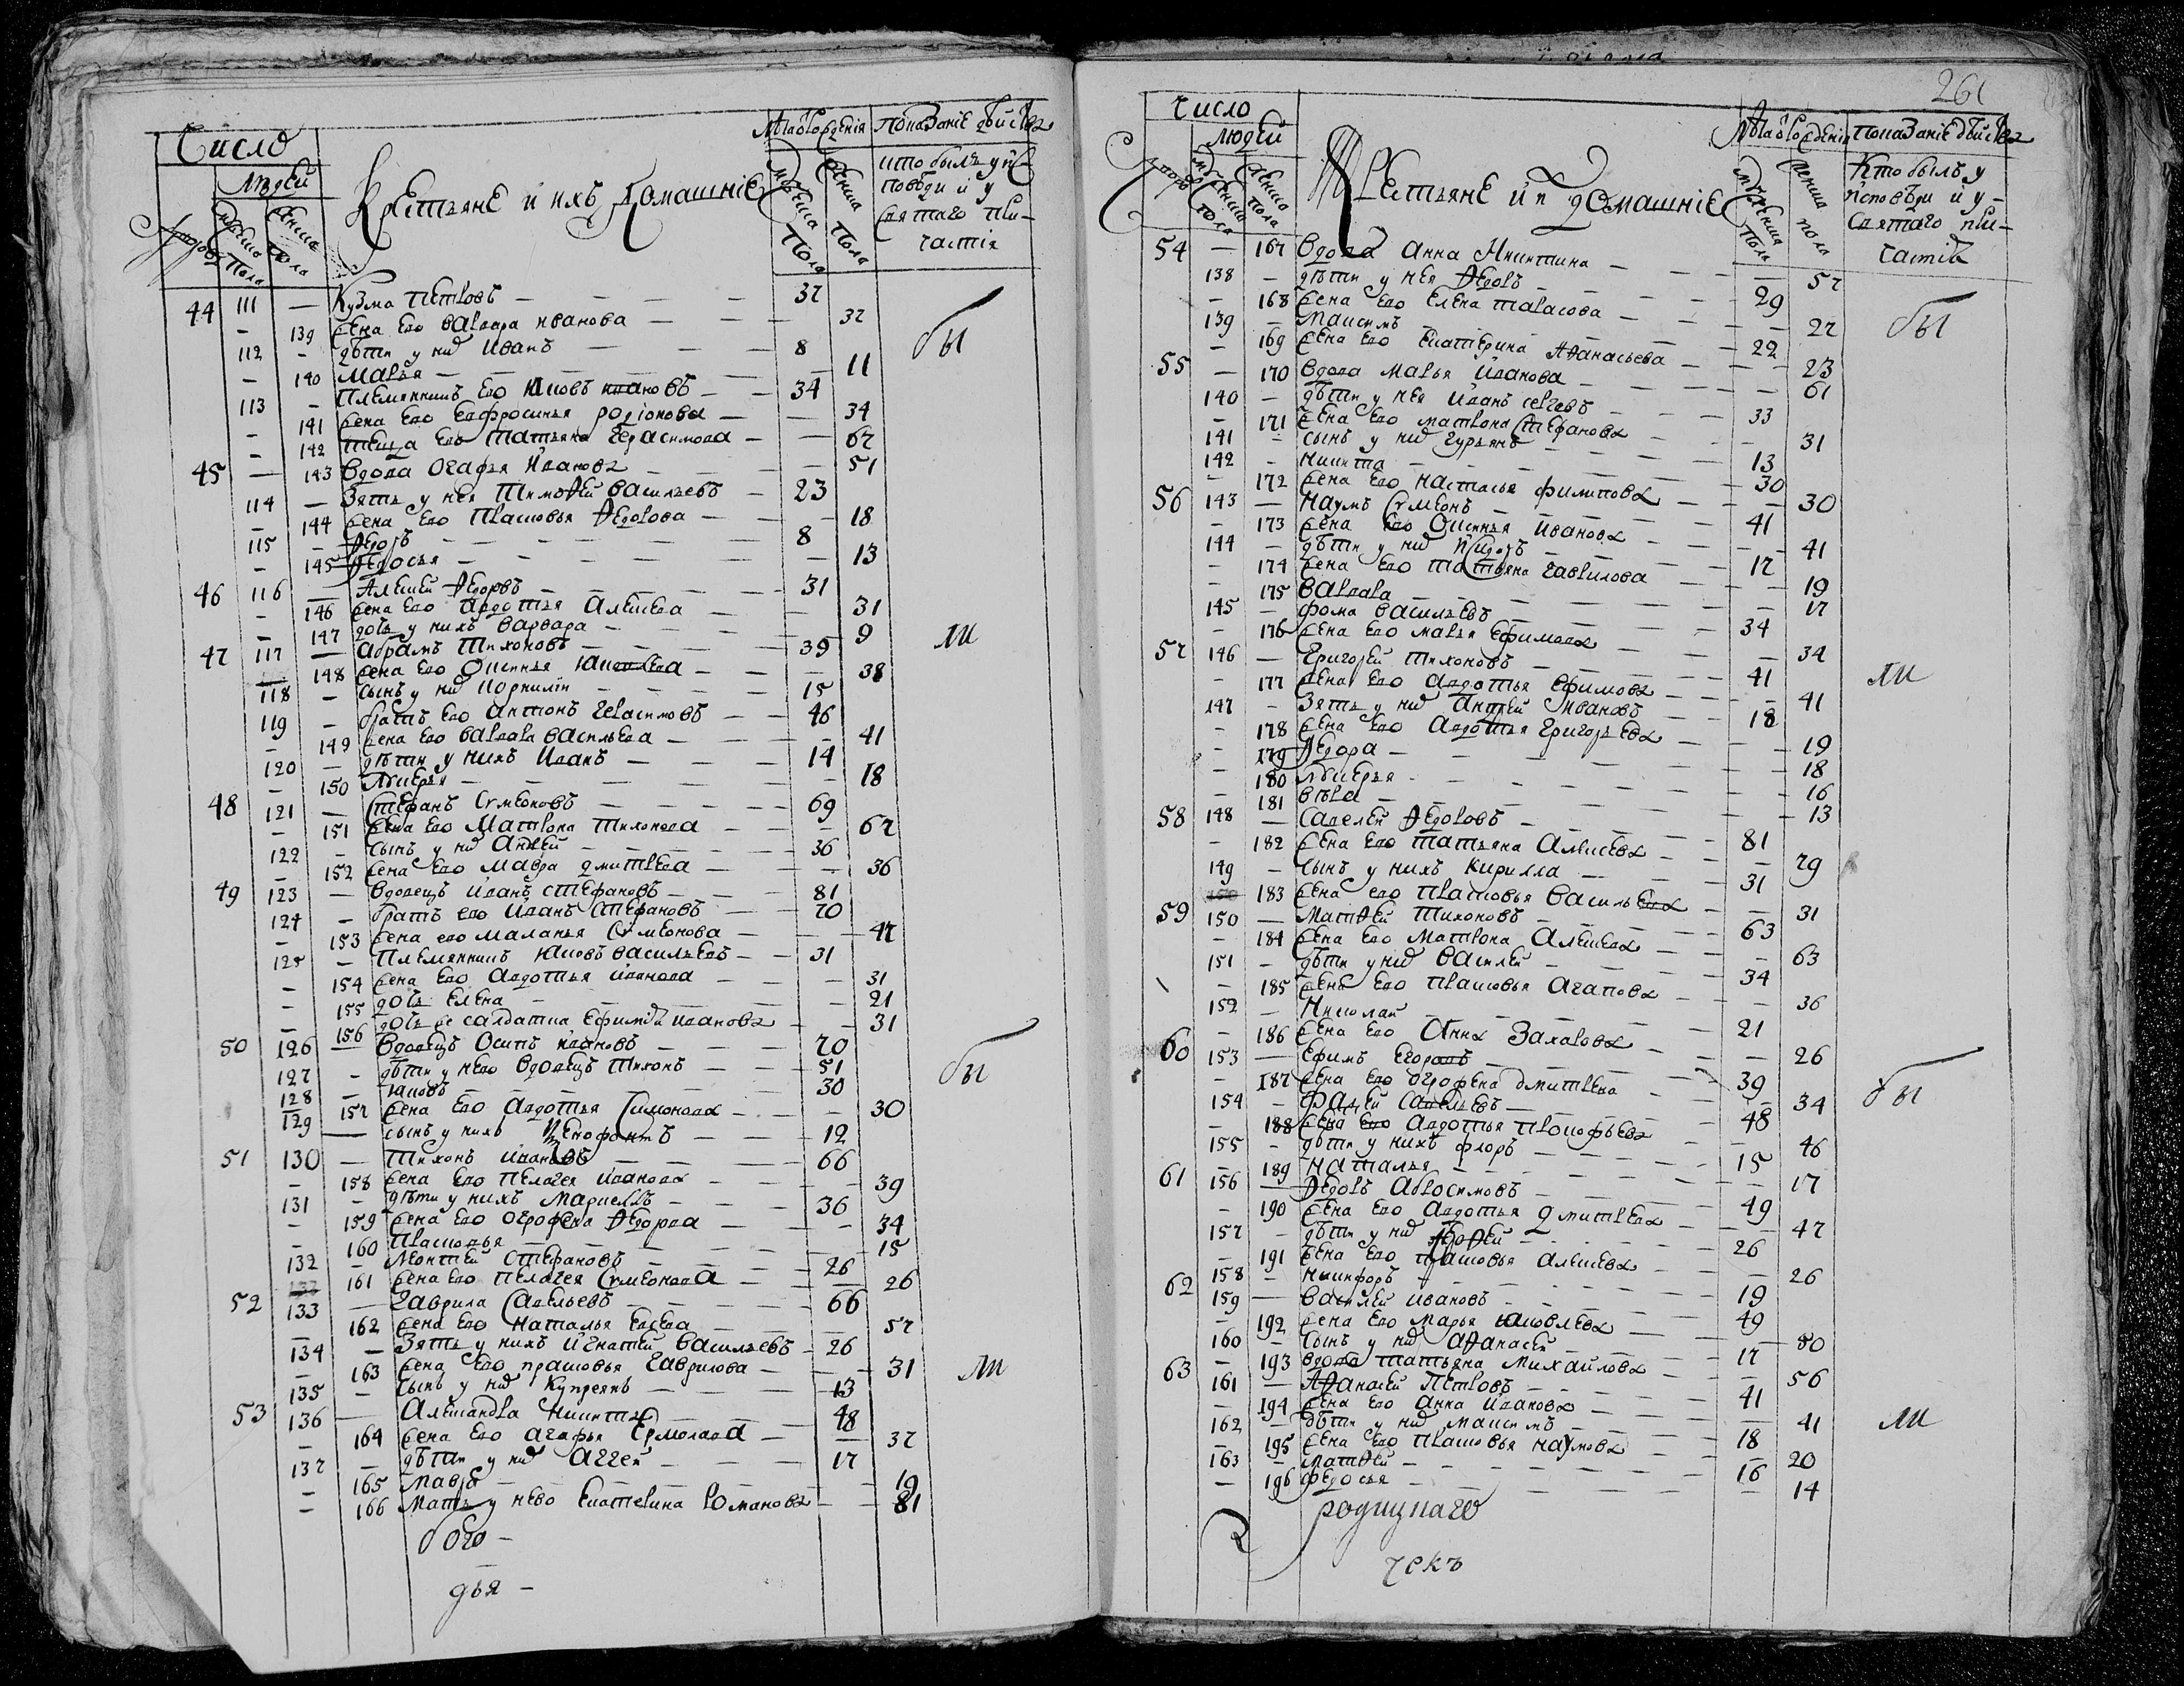 Число
Людей
Крестьяне и ихъ домашние
44 111 — Кузма Петровъ — 37
— 139 жена ево Варвара Иванова — 37
112 — дѣти у них Иванъ — 8
— 140 Марья — 11
113 — Племянникъ ево Яковъ Ивановъ — 34
— 141 жена ево Евфросинья Родіонова — 34
— 142 теща ево Татьяна Герасимова — 67
45 — 143 Вдова Огафья Иванова — 51
114 — Зять у нея Тимоѳей Васильевъ — 23
— 144 жена ево Прасковья Ѳедорова — 18
115 — Ѳедоръ — 8
— 145 Ѳедосья — 13
46 116 — Алексей Ѳедоровъ — 31
— 146 жена ево Авдотья Алексеева — 31
— 147 дочь у нихъ Варвара — 9
47 117 — Абрамъ Тихоновъ — 39
— 148 жена ево Оксинья — 38
118 — сынъ у них Корнилій — 15
119 — братъ ево Антонъ Герасимовъ — 46
— 149 жена ево Варвара Васильева — 41
120 — дѣти у нихъ Иванъ — 14
— 150 Лукерья — 18
48 121 — Стефанъ Сумеоновъ — 69
— 151 жена ево Матрона Тихонова — 67
122 — сынъ у них Андрей — 36
— 152 жена ево Мавра Дмитрева — 36
49 123 — Вдовецъ Иванъ Стефановъ — 81
124 — братъ ево Иванъ Стефановъ — 70
— 153 жена ево Маланья Сумеонова — 47
125 — Племянникъ Яковъ Васильевъ — 31
— 154 жена ево Авдотья Иванова — 31
— 155 дочь Елена — 21
— 156 дочь же салдатка Ефимія Иванова — 31
50 126 — Вдовецъ Осипъ Ивановъ — 70
127 — дѣти у нево вдовецъ Тихонъ — 51
128 — Яковъ — 30
— 157 жена ево Авдотья Симонова — 30
129 — сынъ у нихъ Ксенофонтъ — 12
51 130 — Тихонъ Ивановъ — 66
— 158 жена ево Пелагея Иванова — 39
131 — дѣти у нихъ Маркеллъ — 36
— 159 жена ево Огрофена Ѳедорова — 34
— 160 Прасковья — 15
132 — Леонтей Стефановъ — 26
— 161 жена ево Пелагея Сумеонова — 26
52 133 — Гаврила Савельевъ — 66
— 162 жена ево Наталья Евсева — 57
134 — Зять у нихъ Игнатей Васильевъ — 26
— 163 жена ево Прасковья Гаврилова — 31
135 — сынъ у них Купреянъ — 13
53 136 — Александра Никитин — 48
— 164 жена ево Агафья Ермолаева — 37
137 — дѣти у них Аггей — 17
— 165 Мавра — 19
— 166 Мать у нево Екатерина Романова — 81
бого-
дья-
261
Число
Людей
Крестьяне и их домашние
Кто былъ у
исповѣди и у-
святаго при-
частія
54 — 167 Вдова Анна Никитина — 57
138 — дѣти у нея Ѳедоръ — 29
— 168 жена ево Елена Тарасова — 27
139 — Максимъ — 22
— 169 жена ево Екатерина Аѳанасьева — 23
55 — 170 Вдова Марья Иванова — 61
140 — дѣти у нея Иванъ Сергевъ — 33
— 171 жена ево Матрона Стефанова — 31
141 — сынъ у них Гурьянъ — 13
142 — Никита — 30
— 172 жена ево Настасья Филипова — 30
56 143 — Наумъ Сумеонъ — 41
— 173 жена ево Оксинья Иванова — 41
144 — дѣти у них Исидоръ — 17
— 174 жена ево Татьяна Гаврилова — 19
— 175 Варвара — 17
145 — Фома Васильевъ — 34
— 176 жена ево Марья Ефимова — 34
57 146 — Григорей Тихоновъ — 41
— 177 жена ево Авдотья Ефимова — 41
147 — Зять у них Андрей Ивановъ — 18
— 178 жена ево Авдотья Григорьева — 19
— 179 Ѳедора — 18
— 180 Лукерья — 16
— 181 Вѣра — 13
58 148 — Савелей Ѳедоровъ — 81
— 182 жена ево Татьяна Алексева — 79
149 — сынъ у нихъ Кирилла — 31
183 жена ево Прасковья Васильева — 31
59 150 — Матѳей Тихоновъ — 63
— 184 жена ево Матрона Алексева — 63
151 — дѣти у них Василей — 34
— 185 жена ево Прасковья Агапова — 36
152 — Николай — 21
— 186 жена ево Анна Захарова — 26
60 153 — Ефимъ Егоровъ — 39
— 187 жена ево Огрофена Дмитрева — 34
154 — Фадей Савельевъ — 48
— 188 жена ево Авдотья Прокофьева — 46
155 — дѣти у нихъ Флоръ — 15
— 189 Наталья — 17
61 156 — Ѳедоръ Абросимовъ — 49
— 190 жена ево Авдотья Дмитрева — 47
157 — дѣти у них — 26
— 191 жена ево Прасковья Алексева — 26
158 — Никифоръ — 19
62 159 — Василей Ивановъ — 49
— 192 жена ево Марья Яковлева — 50
160 — сынъ у них Аѳанасей — 17
— 193 вдова Татьяна Михайлова — 56
63 161 — Аѳанасей Петровъ — 41
— 194 жена ево Анна Иванова — 41
162 — дѣти у них Максимъ — 18
— 195 жена ево Прасковья Наумова — 20
163 — Матѳей — 16
— 196 Ѳедосья — 14
родицнаго
чекъ